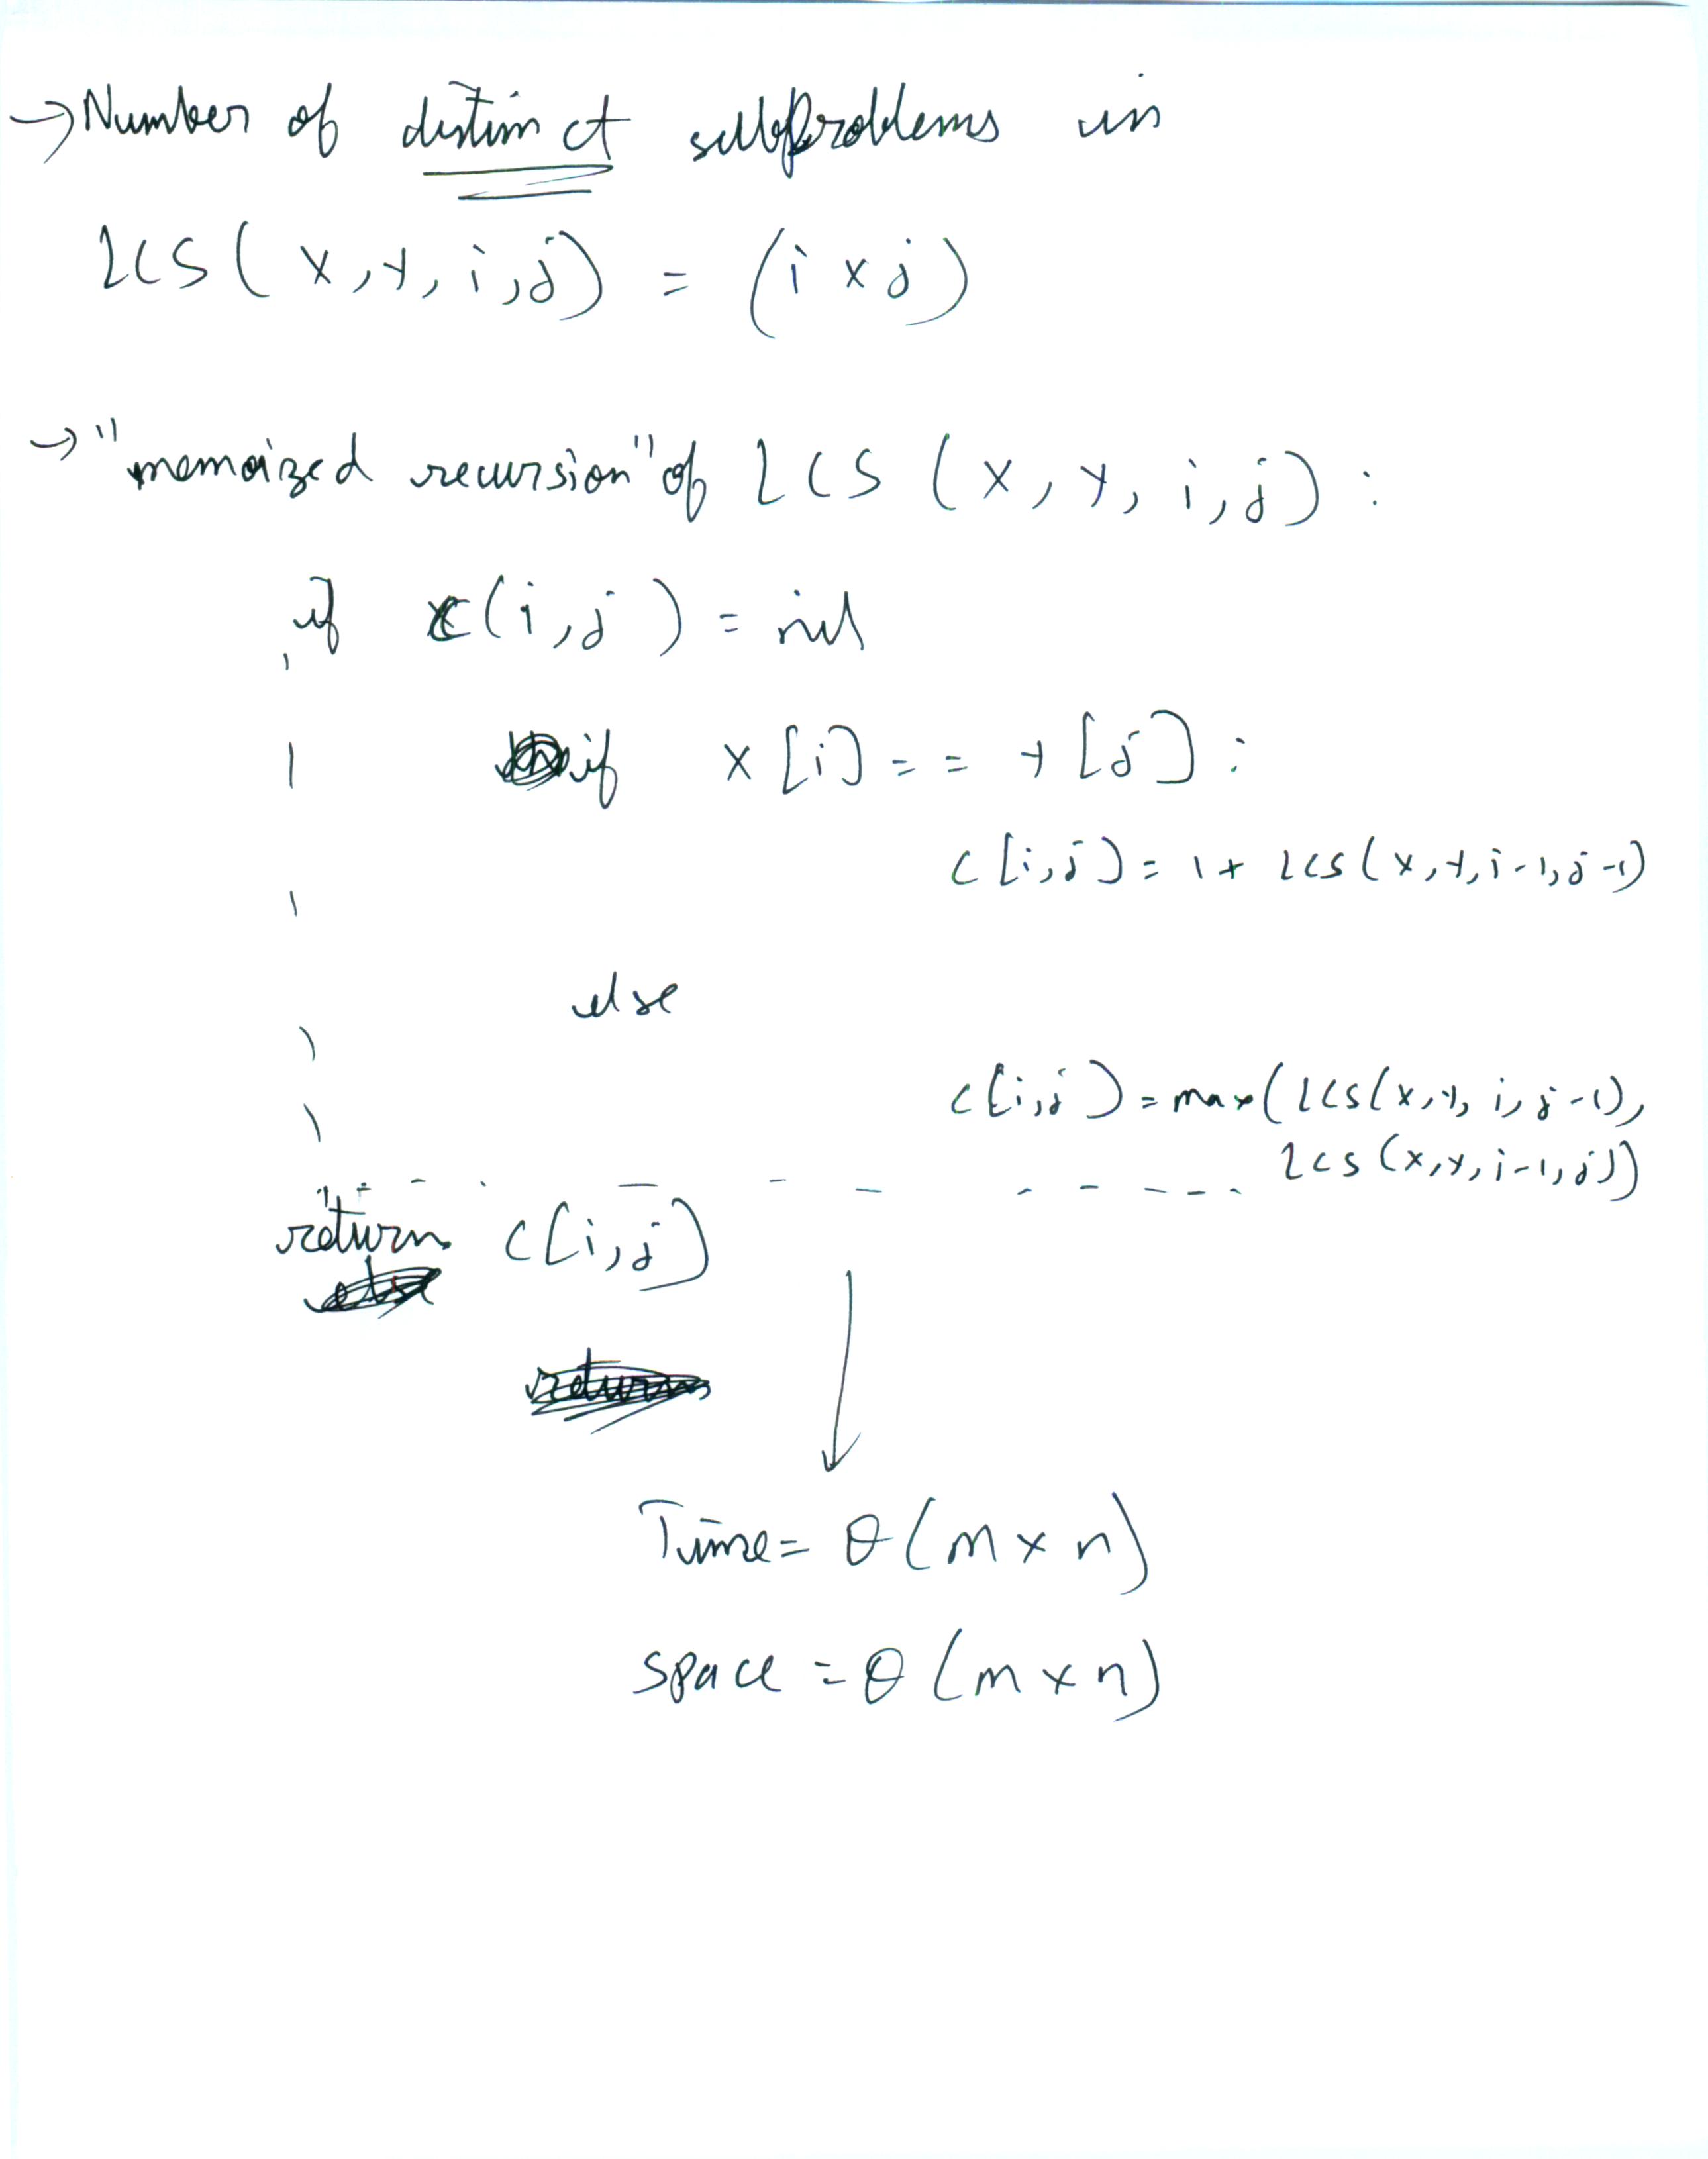 → Number of distinct subproblems in
LCS ( x, y, i, j) = (i x j)
→ "memoized recursion" of LCS (x, y, i, j) :
if c(i, j) = nil
if x [i] == y [j] :
c [i, j] = 1 + LCS (x, y, i-1, j-1)
else
c [i, j] = max (LCS(x, y, i, j-1),
LCS (x, y, i-1, j))
return c[i, j]
Time = θ (m x n)
space = θ (m x n)